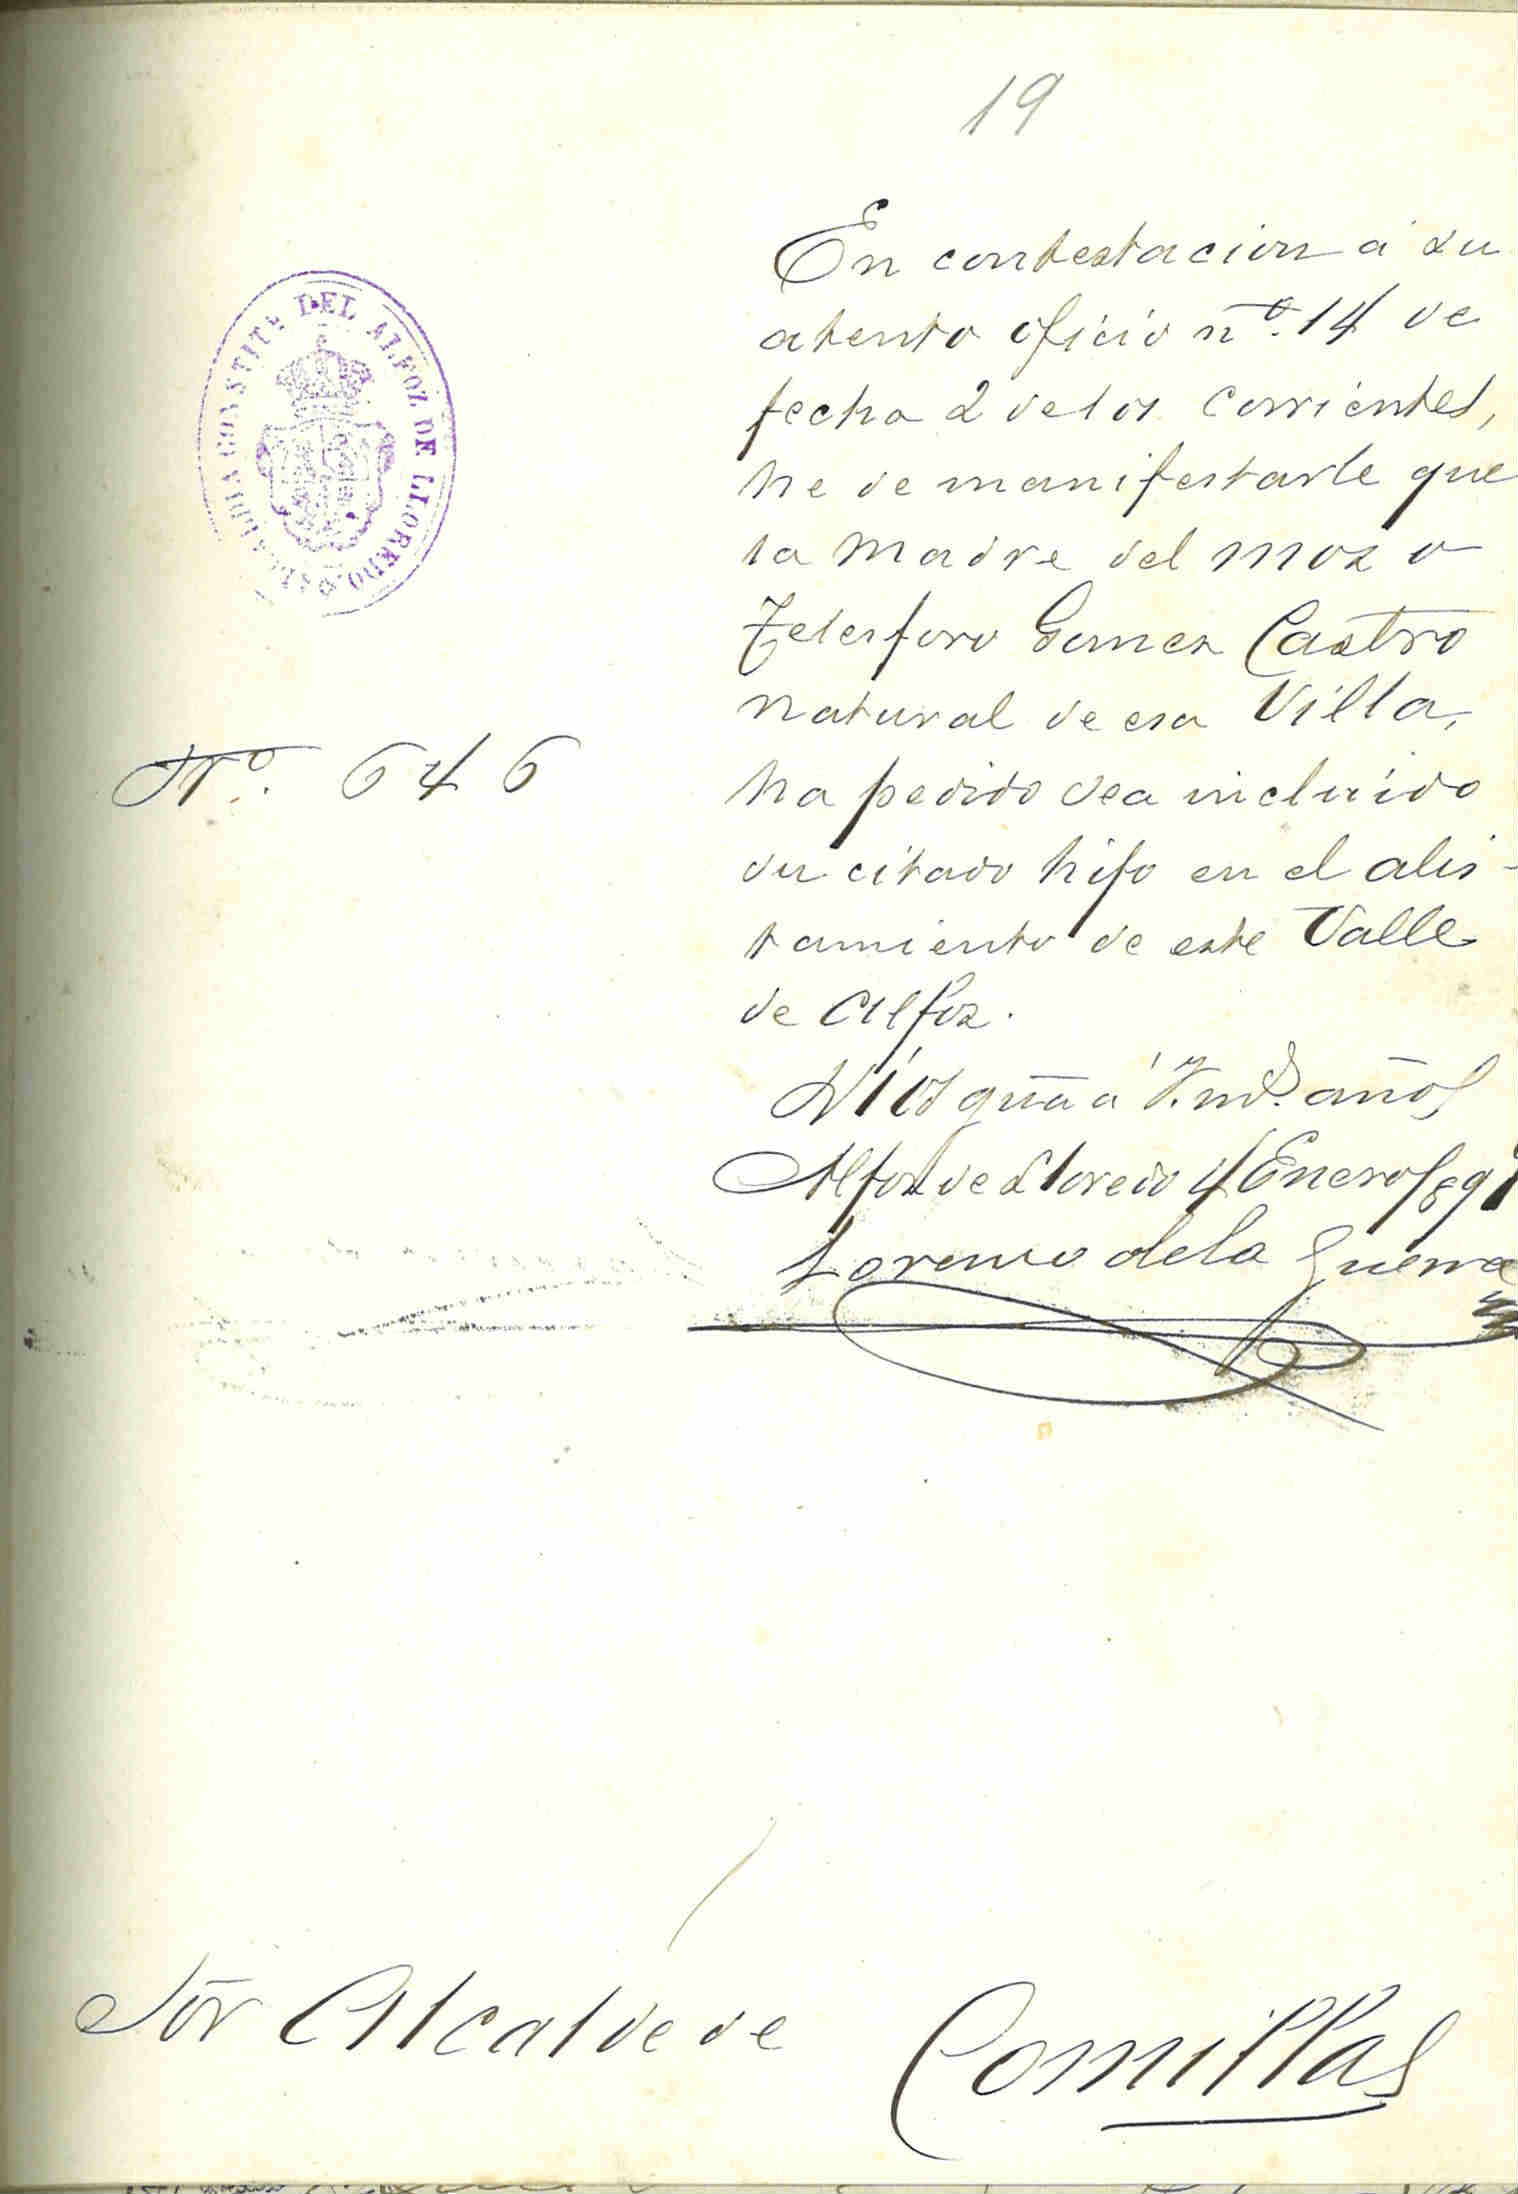 19
ALCALDIA CONSTITL DEL ALFOZ DE LLOREDO
En contestacion á su
atento oficio nº. 14 de
fecha 2 de los corrientes,
he de manifestarle que
la Madre del mozo
Telesforo Gomez Castro
natural de esa Villa,
Nº. 646
ha pedido sea incluido
su citado hijo en el alis-
tamiento de este Valle
de Alfoz.
Dios gūe á V. ms. años
Alfoz de Lloredo 4 Enero 1891
Lorenzo dela Guerra
Sōr Alcalde de Comillas